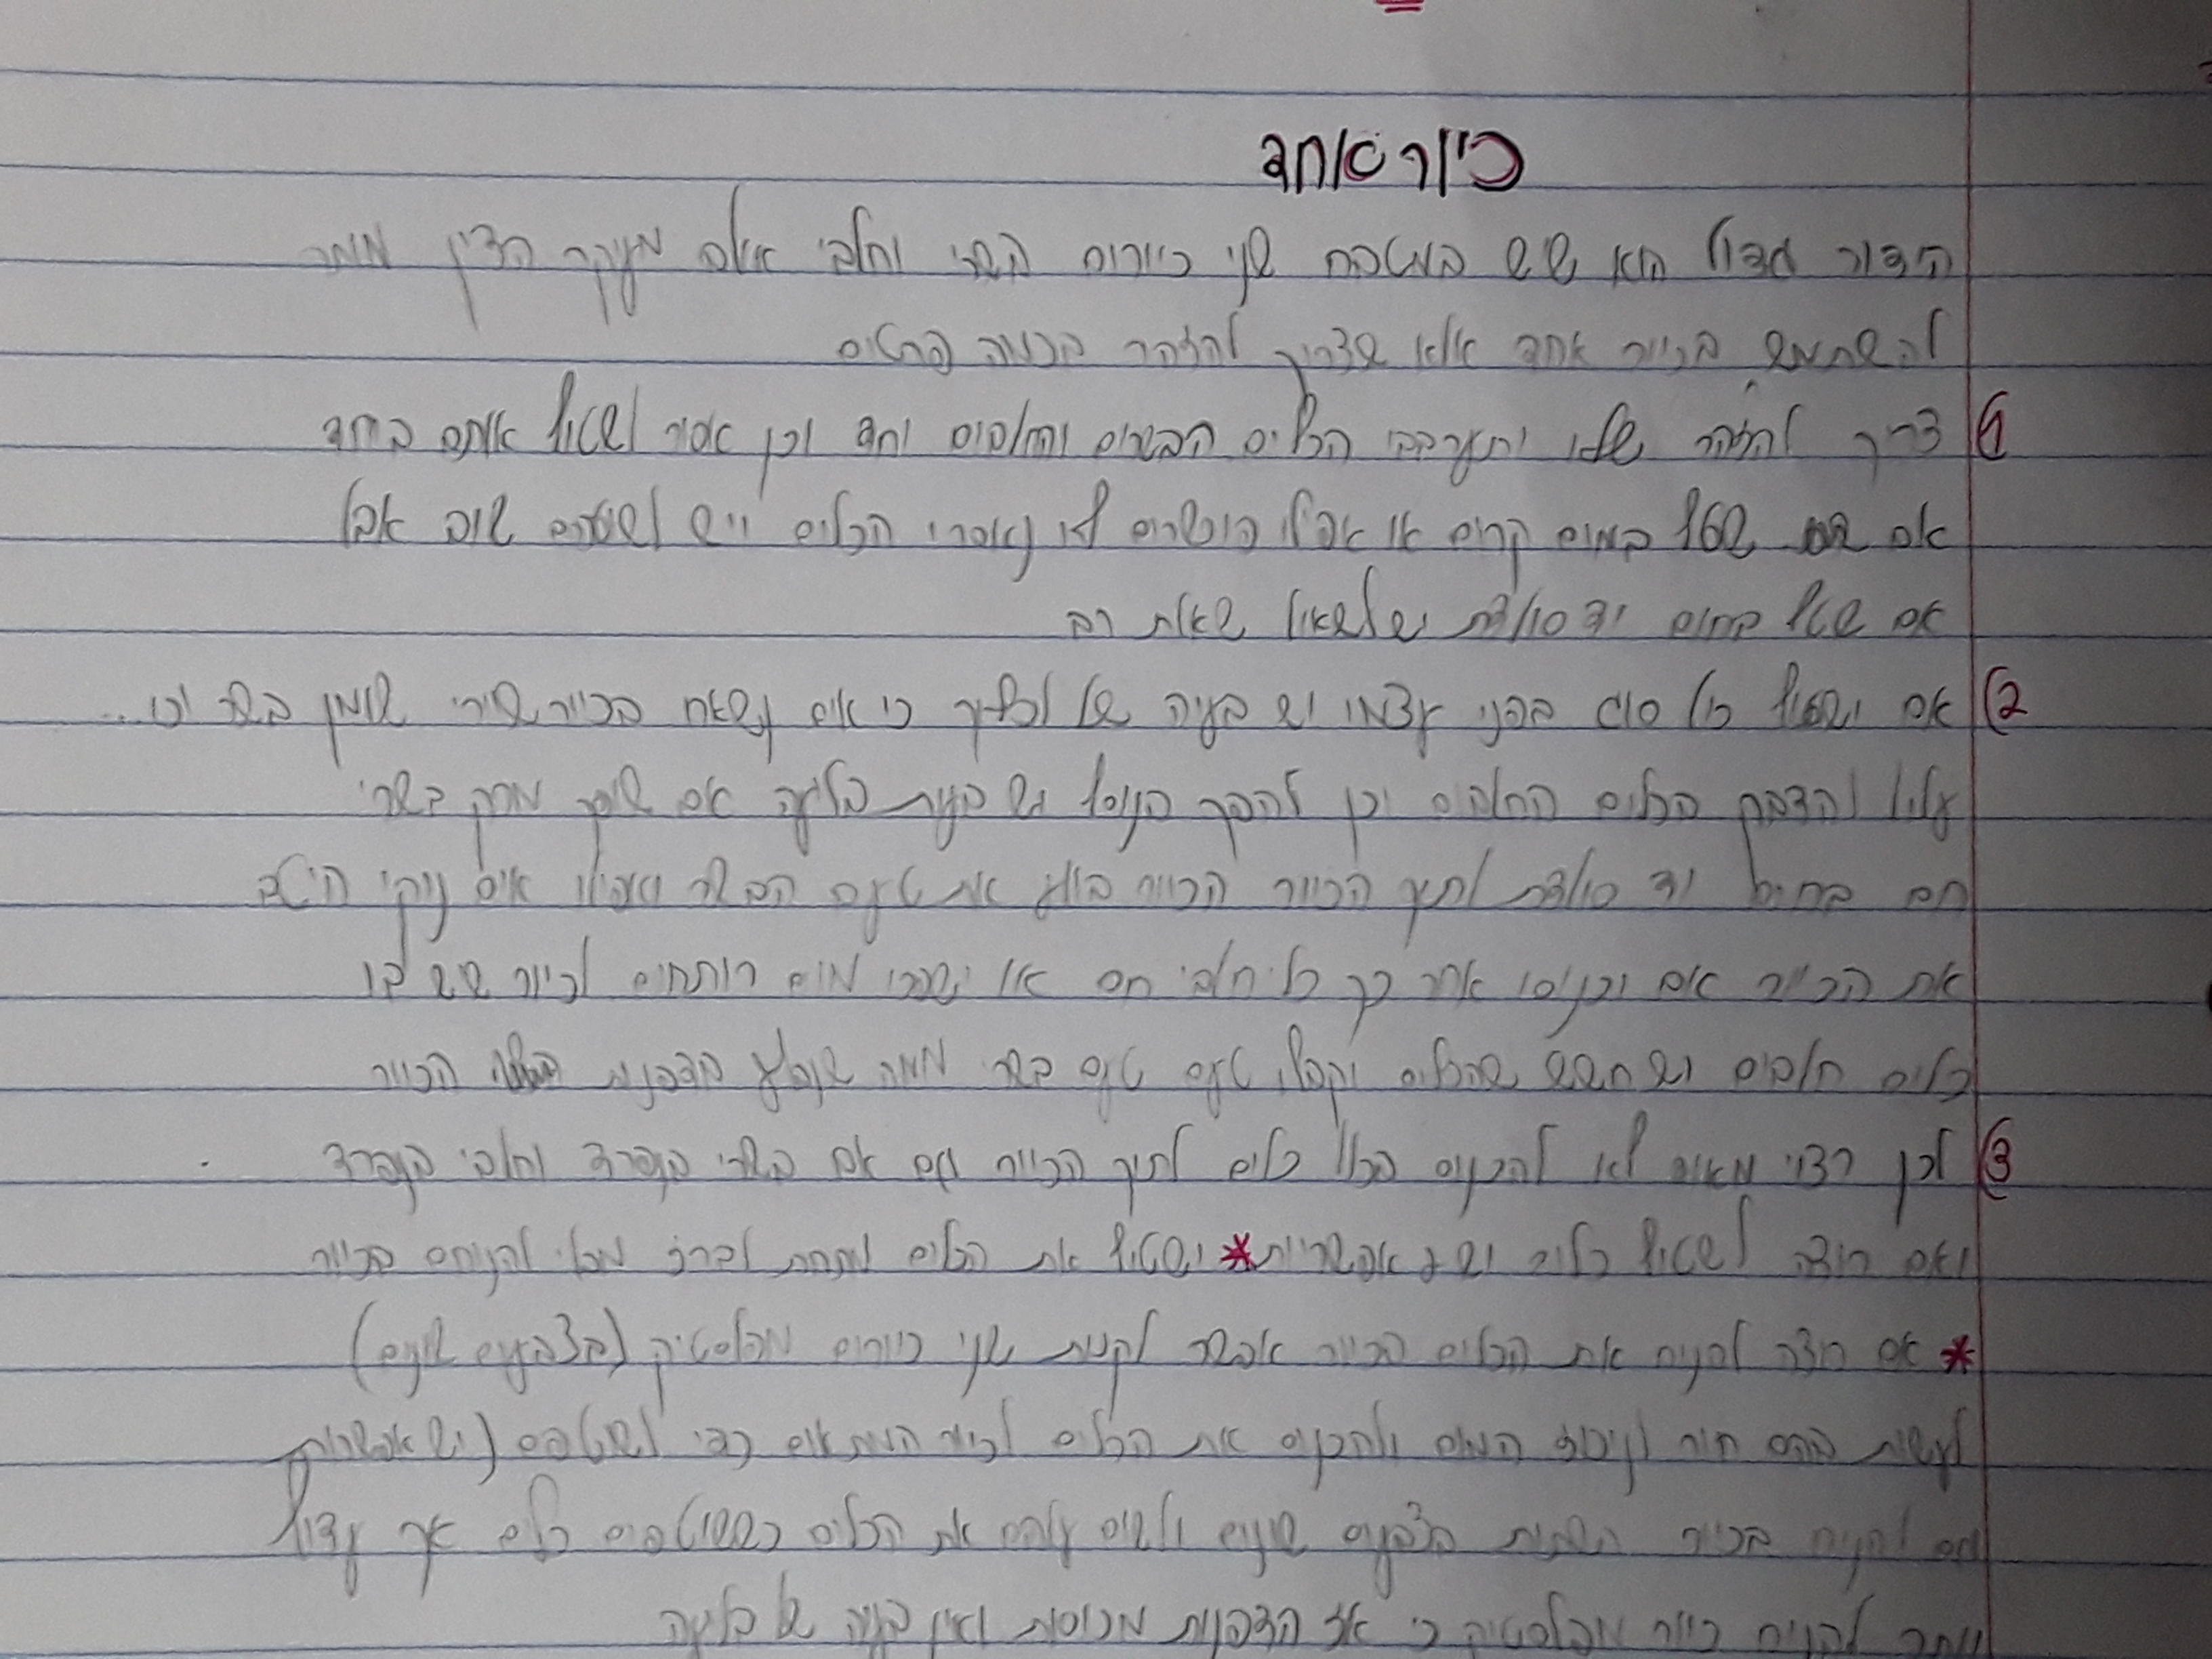 כיור אחד
הידור גדול הוא שיש במטבח שני כיורים בשרי וחלבי אולם מעיקר הדין מותר
להשתמש בכיור אחד אלא שצריך להזהר בכמה פרטים
1) צריך להזהר שלא יתערבבו הכלים הבשרים והחלבים יחד וכן אסור לשטוף אותם ביחד
אם שטף במים קרים או אפילו פושרים לא נאסרו הכלים ויש לשוטפם שוב אבל
אם שטף בחום יד סולדת יש לשאול שאלת רב
2) אם ישטוף כל סוג בפני עצמו יש בעיה של לכלוך כי אם נשאר בכיור שיורי שומן בשר וכו...
עלול להדבק בכלים החלבים וכן להפך בנוסף יש בעית בליעה אם שופך מרק בשרי
חם בחום יד סולדת לתוך הכיור הכיור בולע את טעם הבשר ואפילו אם ניקו היטב
את הכיור אם יכניסו אחר כך כלי חלבי חם או ישפכו מים רותחים לכיור שיש בו
כלים חלבים יש חשש שהכלים יקבלו טעם טעם בשר ממה שנבלע בדפנות הכיור
3) לכן רצוי מאוד לא להכניס בכלל כלים לתוך הכיור גם אם בשרי בנפרד וחלבי בנפרד
ואם רוצה לשטוף כלים יש אפשריות * ישטוף את הכלים מתחת לברז מבלי להניחם בכיור
* אם רוצה להניח את הכלים בכיור אפשר לקנות שני כיורים מפלסטיק (בצבעים שונים)
לעשות בהם חור לניקוז המים ולהכניס את הכלים לכיור המתאים כדי לשוטפם (יש אפשרות
גם להניח בכיור רשתות בצבעים שונים ולשים עליהם את הכלים כששוטפים כלים אך עדיף
יותר להניח כיור מפלסטיק כי אז הדפנות מכוסות ואין בעיה של בליעה